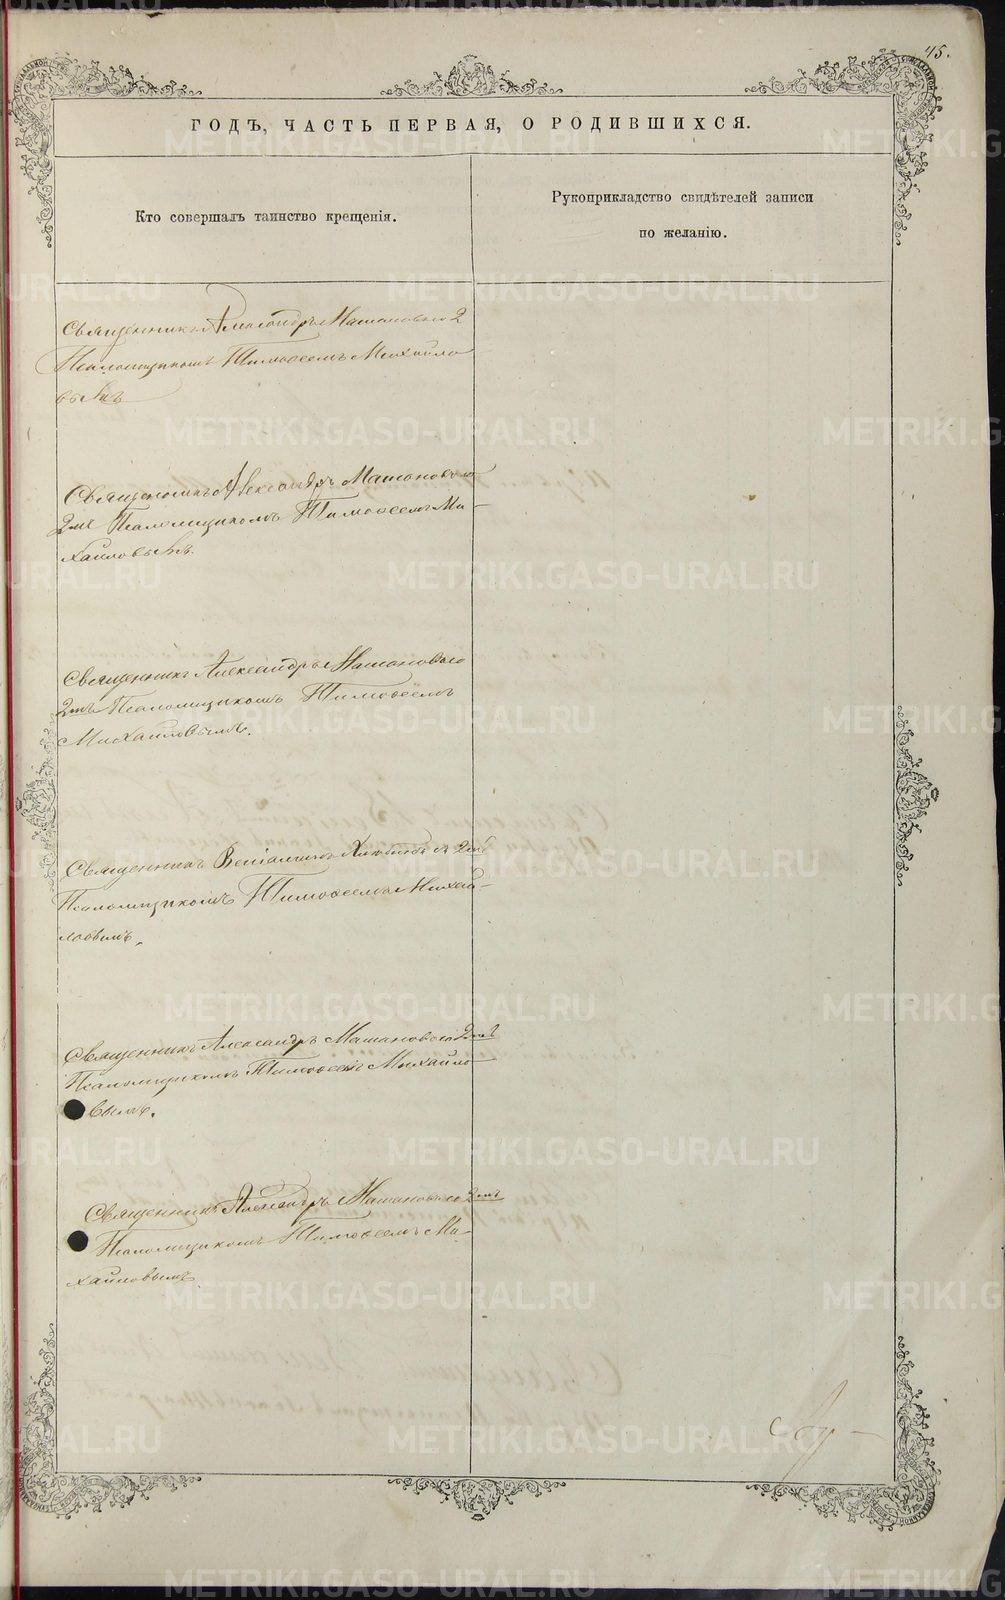 45.
ГОДЪ, ЧАСТЬ ПЕРВАЯ, О РОДИВШИХСЯ.
Кто совершалъ таинство крещенія.
Рукоприкладство свидѣтелей записи
по желанію.
Священникъ Александръ
Псаломщикомъ Тимоѳеемъ Михайло
вымъ
Священникъ Александръ
Псаломщикомъ Тимоѳеемъ Ми-
хайловымъ.
Священникъ Александръ
Псаломщикомъ Тимоѳеемъ
Михайловымъ.
Священникъ Веніаминъ
Псаломщикомъ Тимоѳеемъ Михай-
ловымъ.
Священникъ Александръ
Псаломщикомъ Тимоѳеемъ Михайло
вымъ.
Священникъ Александръ
Псаломщикомъ Тимоѳеемъ Ми-
хайловымъ
METRIKI.GASO-URAL.RU